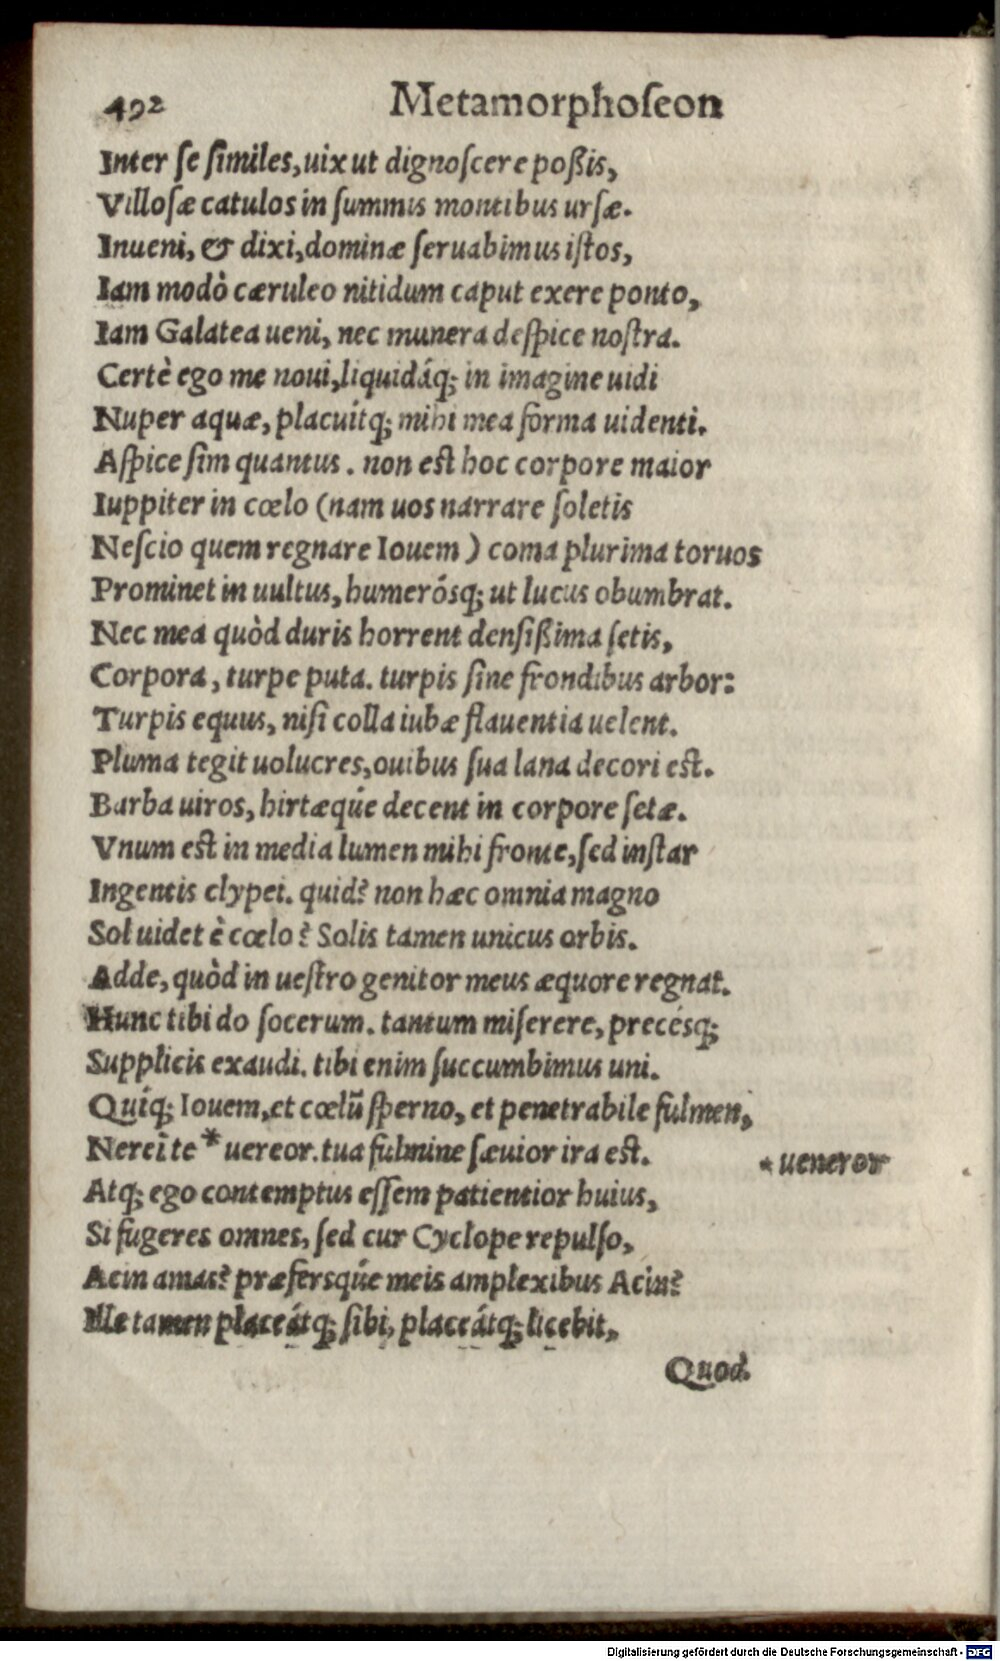 492 Metamorphoſeon
Inter ſe ſimiles, uix ut dignoſcere poßis,
Villoſæ catulos in ſummis montibus urſæ.
Inueni, & dixi, dominæ ſeruabimus iſtos,
Iam modò cæruleo nitidum caput exere ponto,
Iam Galatea ueni, nec munera deſpice noſtra.
Certè ego me noui, liquidáq; in imagine uidi
Nuper aquæ, placuítq; mihi mea forma uidenti.
Aſpice ſim quantus. non eſt hoc corpore maior
Iuppiter in cœlo (nam uos narrare ſoletis
Neſcio quem regnare Iouem) coma plurima toruos
Prominet in uultus, humerósq; ut lucus obumbrat.
Nec mea quòd duris horrent denſißima ſetis,
Corpora, turpe puta. turpis ſine frondibus arbor:
Turpis equus, niſi colla iubæ flauentia uelent.
Pluma tegit uolucres, ouibus ſua lana decori eſt.
Barba uiros, hirtæqúe decent in corpore ſetæ.
Vnum eſt in media lumen mihi fronte, ſed inſtar
Ingentis clypei. quid? non hæc omnia magno
Sol uidet è cœlo? Solis tamen unicus orbis.
Adde, quòd in ueſtro genitor meus æquore regnat.
Hunc tibi do ſocerum. tantum miſerere, precésq;
Supplicis exaudi. tibi enim ſuccumbimus uni.
Quíq; Iouem, et cœlū ſperno, et penetrabile fulmen,
Nereï te * uereor. tua fulmine ſæuior ira eſt.
* ueneror
Atq; ego contemptus eſſem patientior huius,
Si fugeres omnes, ſed cur Cyclope repulſo,
Acin amas? præfersqúe meis amplexibus Acin?
Ille tamen placeátq; ſibi, placeátq; licebit,
Quod.
Digitalisierung gefördert durch die Deutsche Forschungsgemeinschaft - DFG